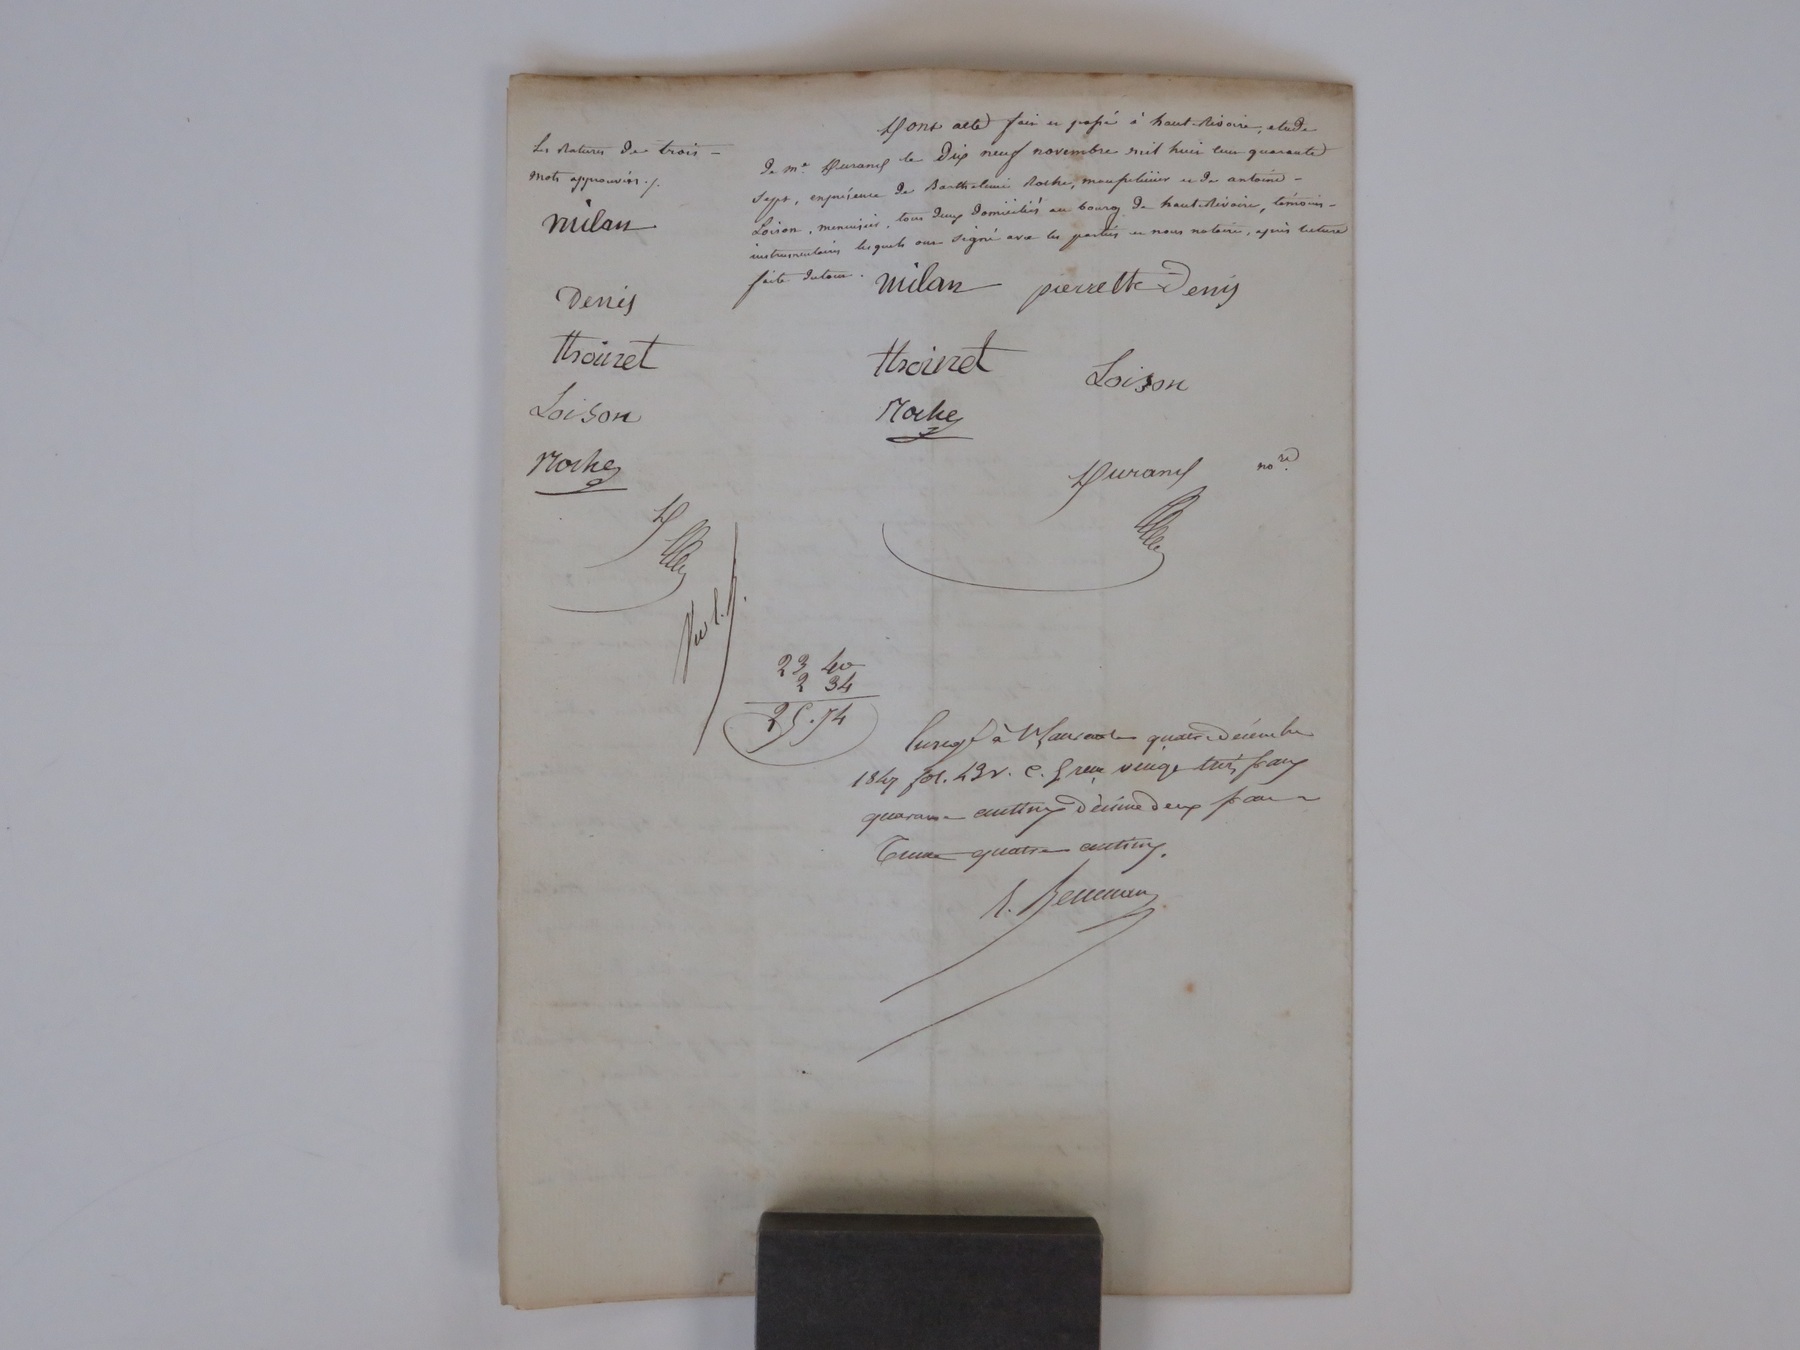 Dont acte fait et passé à haut-Rivoire, étude
de me Durand le Dix neuf novembre mil huit cent quarante
Sept, en présence de Barthelemi Roche, menuisier et de antoine
Loison, menuisier, tous deux domiciliés au bourg de haut-Rivoire, témoins
instrumentaires lesquels ont signé avec les parties et nous notaire, après lecture
faite du tout.
Les ratures de trois
mots approuvées./.
milan
Denis
thoinet
Loison
Roche
D
milan pierrette Denis
thoinet Loison
Roche
Durand nore
23 40
2 34
25.74
Enregé à St Laurent le quatre décembre
1847 fol. 43 v. c. 5 reçu vingt trois francs
quarante centimes décime deux francs
trente quatre centimes.